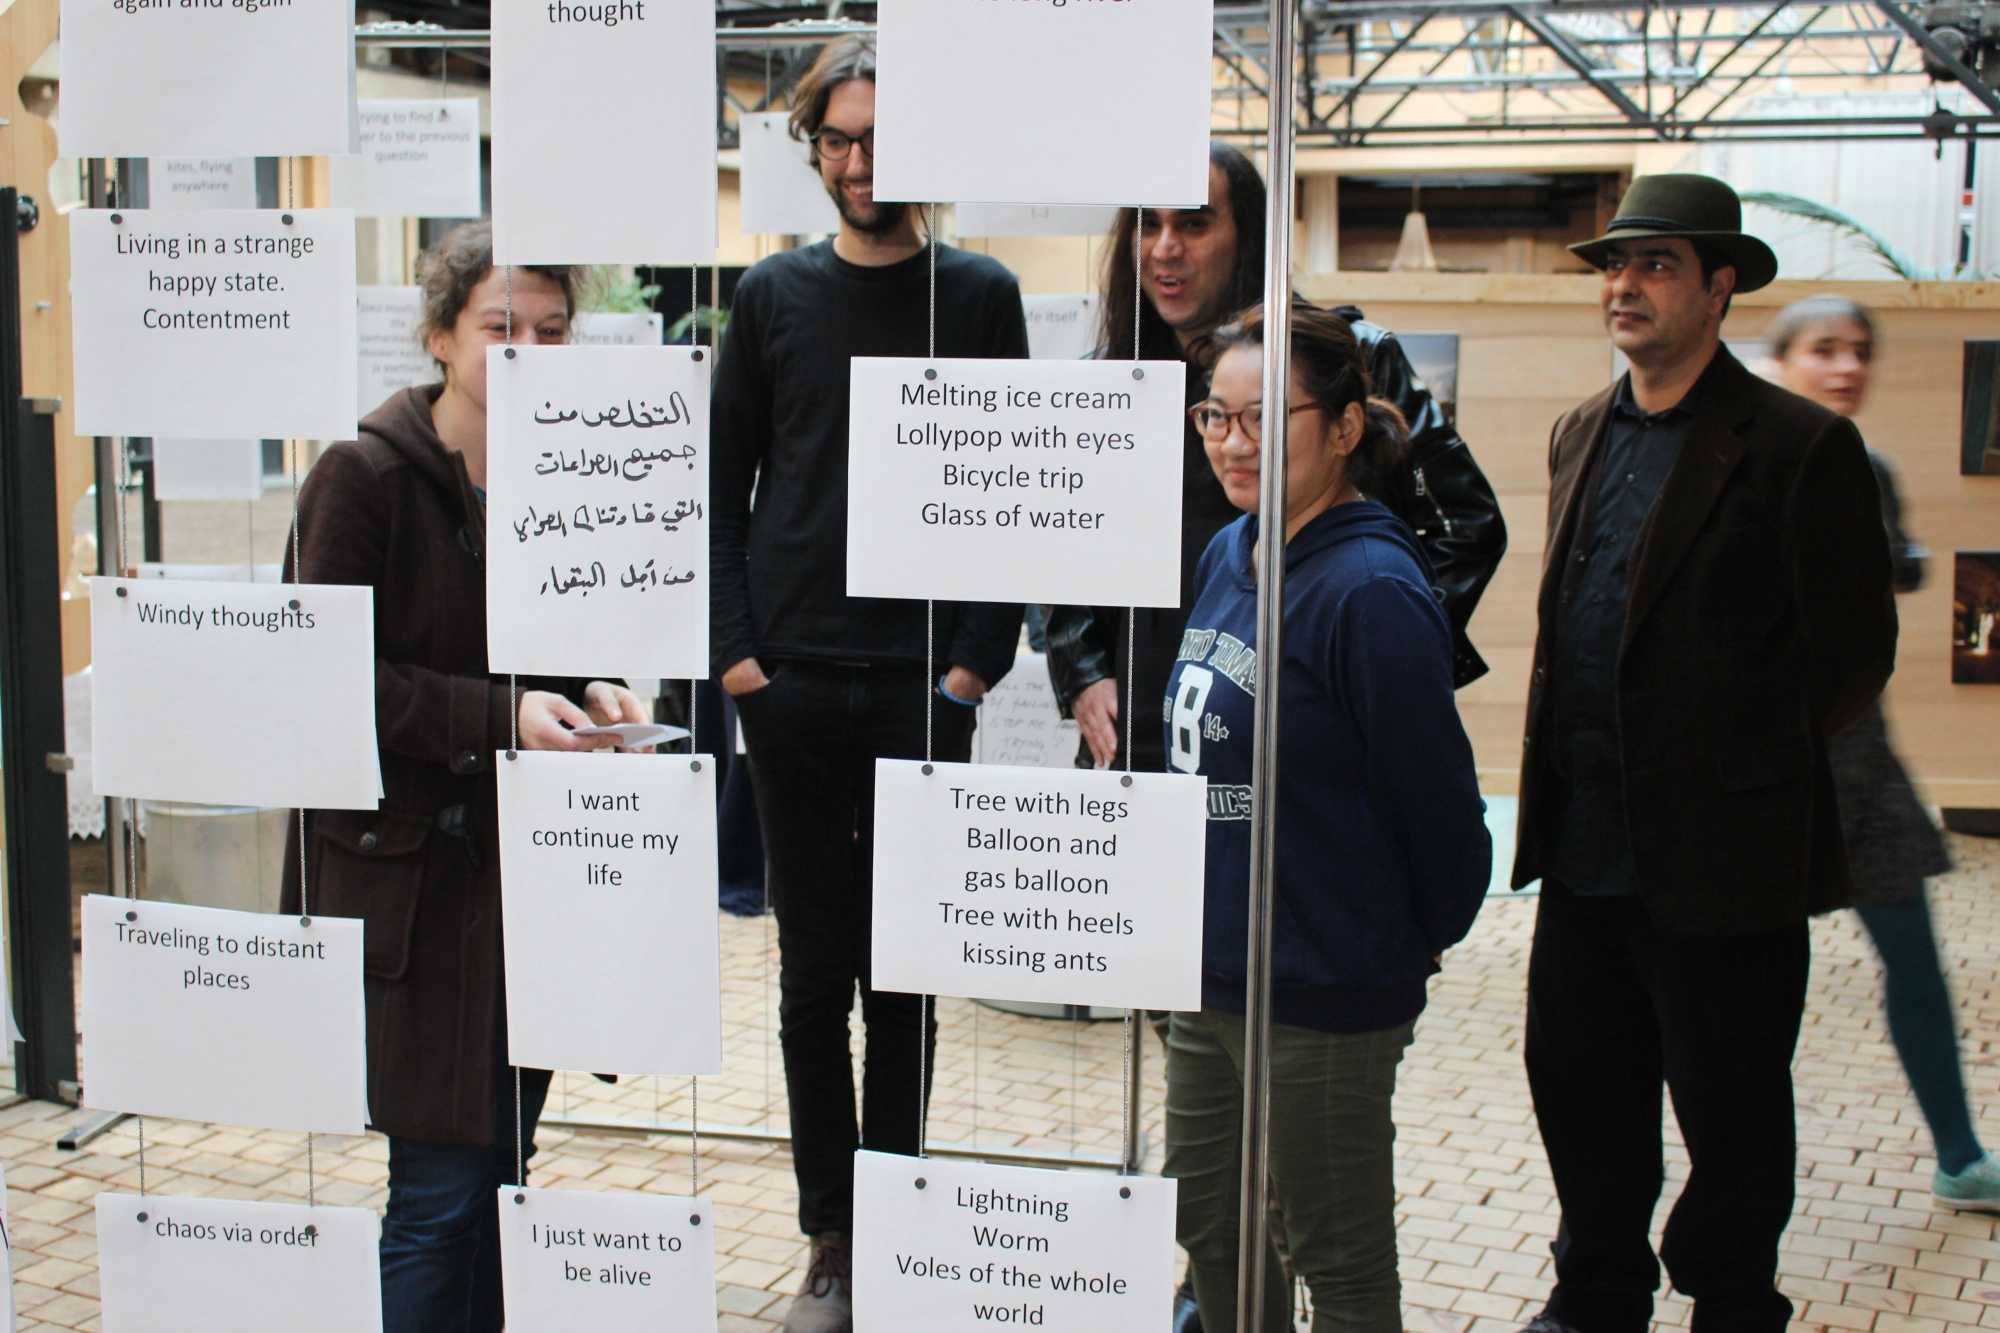 again and again
Living in a strange
happy state.
Contentment
Windy thoughts
Traveling to distant
places
chaos via order
thought
التخلص من
جميع الصراعات
التي
من أجل البقاء
I want
continue my
life
I just want to
be alive
long river
Melting ice cream
Lollypop with eyes
Bicycle trip
Glass of water
Tree with legs
Balloon and
gas balloon
Tree with heels
kissing ants
Lightning
Worm
Voles of the whole
world
kites, flying
anywhere
trying to find an
to the previous
question
here is a
itself
B
14